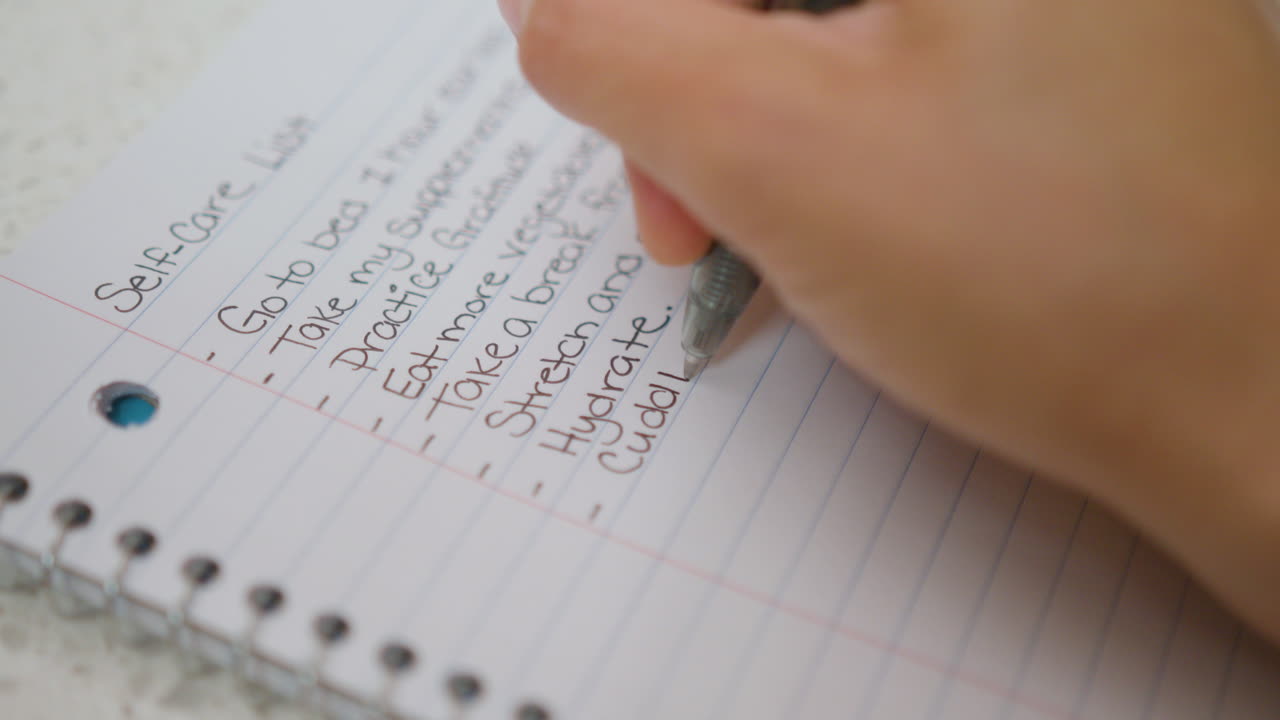 Self-Care List
- Go to bed 1 hour
- Take my supplements
- Practice Gratitude
- Eat more vegetables
- Take a break
- Stretch and
- Hydrate.
- Cuddl